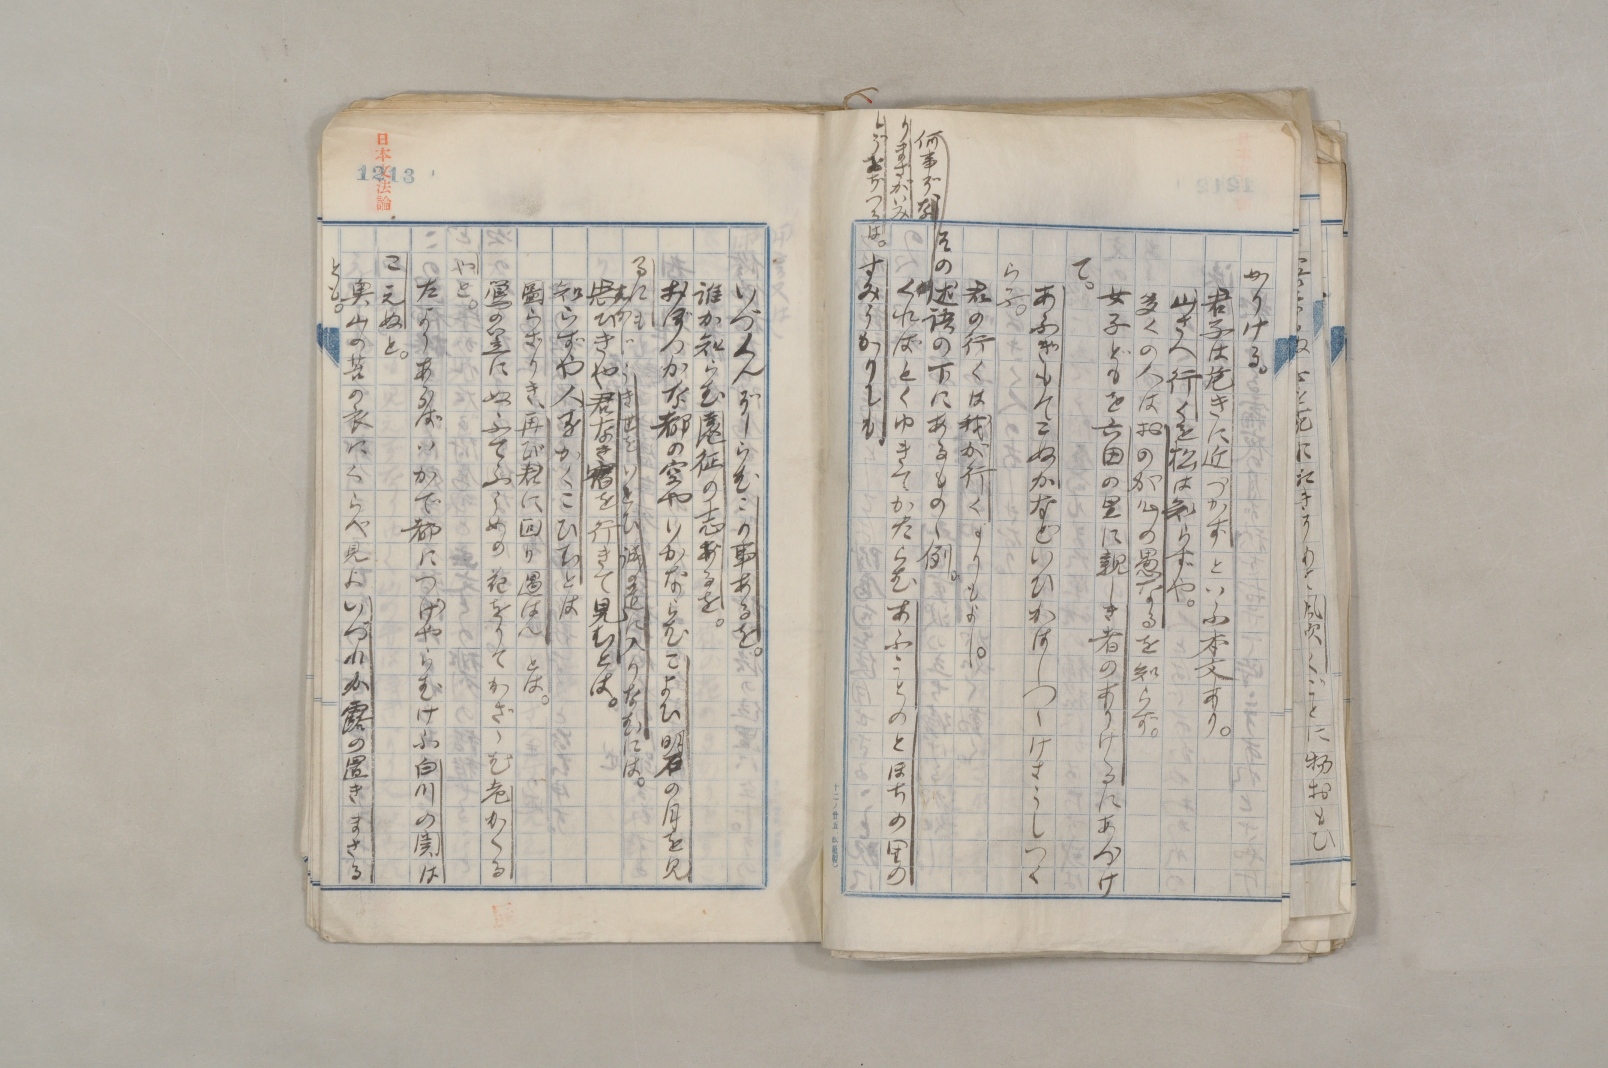 かりける。
君子は危きに近づかずといふ本文あり。
山さへ行くを松は知らずや。
多くの人はおのが心の愚なるを知らず。
女子どもを六田の里に親しき者のありけるにあづけ
て。
らふ。
君の行くは我が行くよりもよし。
その述語の下にあるもの丶例。
くればとくゆきてかたらむあふことのとほちの里の
すみうかりしも
何事がな
りまさがいふ
日本文法論
1213
いづくんぞしらむこの事あるを。
誰か知らむ遠征の志あるを。
おぼつかな都の空やいかならむこよひ明石の月を見
るにも
うき世をいとひ誠の道に入りなむには。
忠ひきや君なき宿を行きて見むとは。
知らずや人をかくこひむとは
図らざりき、再び君に回り遇はんとは。
鶯の笠にぬふてふうめの花をりてかざゝむ老かくる
やと。
たよりあらばいかで都につげやらむけふ白川の関は
こえぬと。
奥山の苔の衣にくらべ見よいづれか露の置きまさる
とも。